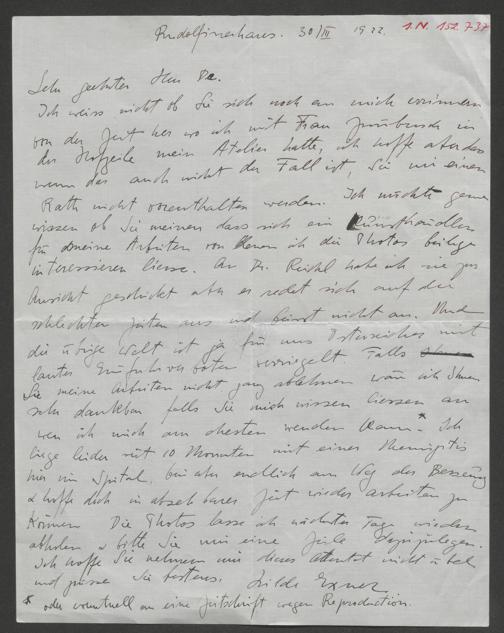 Rudolfinerhaus. 30/III 1922. I.N. 152.737
Sehr geehrter Herr Dr.
Ich weiss nicht ob Sie sich noch an mich erinnern
von der Zeit her wo ich mit Frau in
der Hofzeile mein Atelier hatte, ich hoffe aber dass
wenn das auch nicht der Fall ist, Sie mir einen
Rath nicht vorenthalten werden. Ich möchte gerne
wissen ob Sie meinen dass sich ein Kunsthändler
für meine Arbeiten von denen ich die Photos beilege
interessieren liesse. An Dr. Reichl habe ich sie zur
Ansicht geschickt aber er redet sich auf die
schlechten Zeiten aus und beisst nicht an. Und
die übrige Welt ist ja für uns Österreicher mit
lauter Einfuhrverboten verriegelt. Falls
Sie meine Arbeiten nicht ganz ablehnen wäre ich Ihnen
sehr dankbar falls Sie mich wissen liessen an
wen ich mich am ehesten wenden kann.* Ich
liege leider seit 10 Monaten mit einer Meningitis
hier im Spital, bin aber endlich am Weg der Besserung
& hoffe doch in absehbarer Zeit wieder arbeiten zu
können. Die Photos lasse ich nächster Tage wieder
abholen & bitte Sie mir eine Zeile beizulegen.
Ich hoffe Sie nehmen mir dieses Attentat nicht übel
und grüsse Sie bestens. Hilde Exner
* oder eventuell an eine Zeitschrift wegen Reproduction.